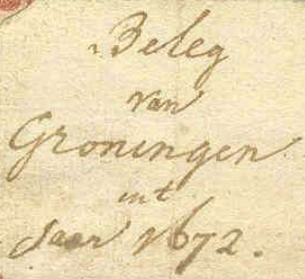 Beleg
van
Groningen
int
Jaar 1672.